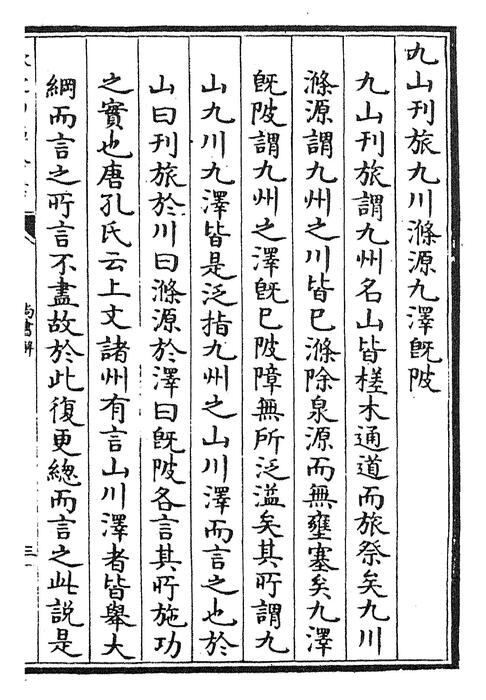 九山刊旅九川滌源九澤旣陂
九山刊旅謂九州名山皆槎木通道而旅祭矣九川
滌源謂九州之川皆巳滌除泉源而無壅塞矣九澤
旣陂謂九州之澤旣巳陂障無所泛溢矣其所謂九
山九川九澤皆是泛指九州之山川澤而言之也於
山曰刊旅於川曰滌源於澤曰旣陂各言其所施功
之實也唐孔氏云上文諸州有言山川澤者皆舉大
綱而言之所言不盡故於此復更總而言之此說是
尚書解
三